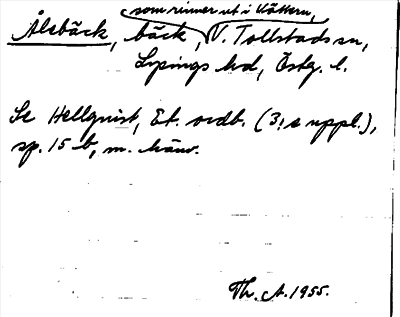 som rinner ut i Vättern,
Ålsbäck, bäck, V. Tollstads sn,
Lysings hd, Östg. l.
Se Hellquist, Et. ordb. (3:e uppl.),
sp. 15 b, m. hänv.
Th. A. 1955.